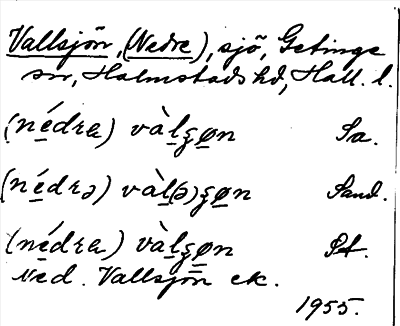 Vallsjön, (Nedre), sjö, Getinge
sn, Halmstads hd, Hall. l.
(nédra) vàlʂøn Sa.
(nédrə) vàl(ə)ʂøn Sand.
(nédra) vàlʂøn Pt.
Ned. Vallsjön ek.
1955.